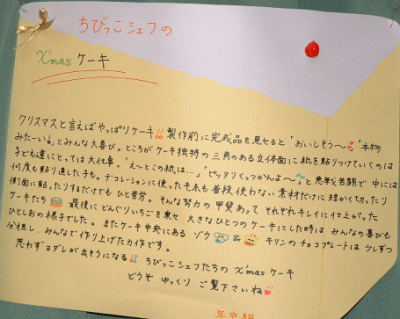 ちびっこシェフの
X'mas ケーキ
クリスマスと言えばやっぱりケーキ!! 製作前に完成品を見せると「おいしそう〜 本物
みたーいる。」とみんな大喜び。ところがケーキ独特の三角のある立体面に紙を貼りつけていくのは
子ども達にとっては大仕事。「え〜とこの紙は…。」「ピッタリくっつかんよ〜」と悪戦苦闘で中には
何度も貼り直した子も。デコレーションに使った毛糸も普段使わない素材だけに細かく切ったり
側面に貼ったりするだけでもひと苦労。そんな努力の甲斐あって それぞれキレイに仕上がった
ケーキたち 最後にどんぐりいちごを乗せ 大きなひとつのケーキにした時は みんなの喜びも
ひとしおの様子でした。またケーキ中央にある ゾウ & キリンのチョコプレートは 少しずつ
分担し、みんなで作り上げた力作です。
思わずヨダレが出そうになる!! ちびっこシェフたちの X'mas ケーキ
どうぞ ゆっくり ご覧下さいね
年中組